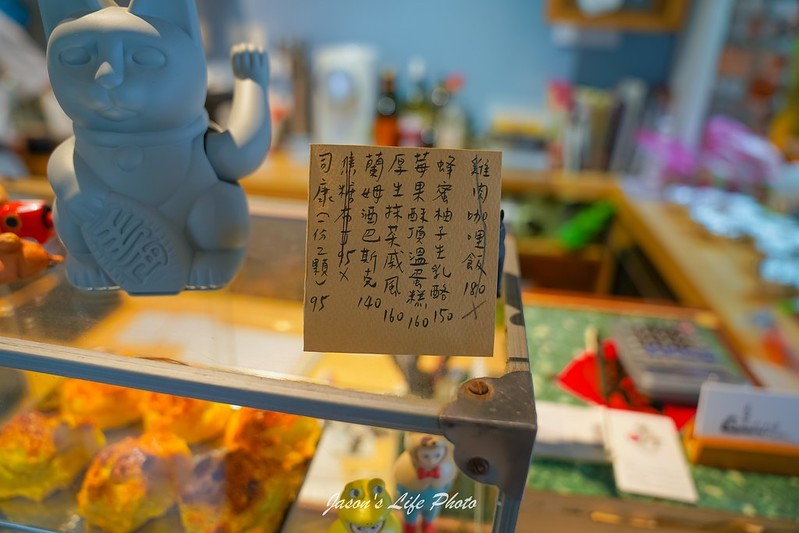 雞肉咖哩飯 180 X
蜂蜜柚子生乳酪 150
莓果酥頂溫蛋糕 160
厚生抹茶戚風 160
蘭姆酒巴斯克 140
焦糖布丁 95 X
司康(一份2顆) 95
Jason's Life Photo